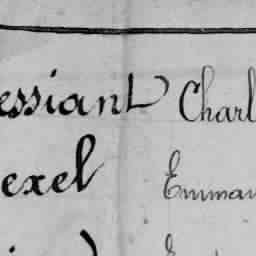 essiant Charl
exel Emman